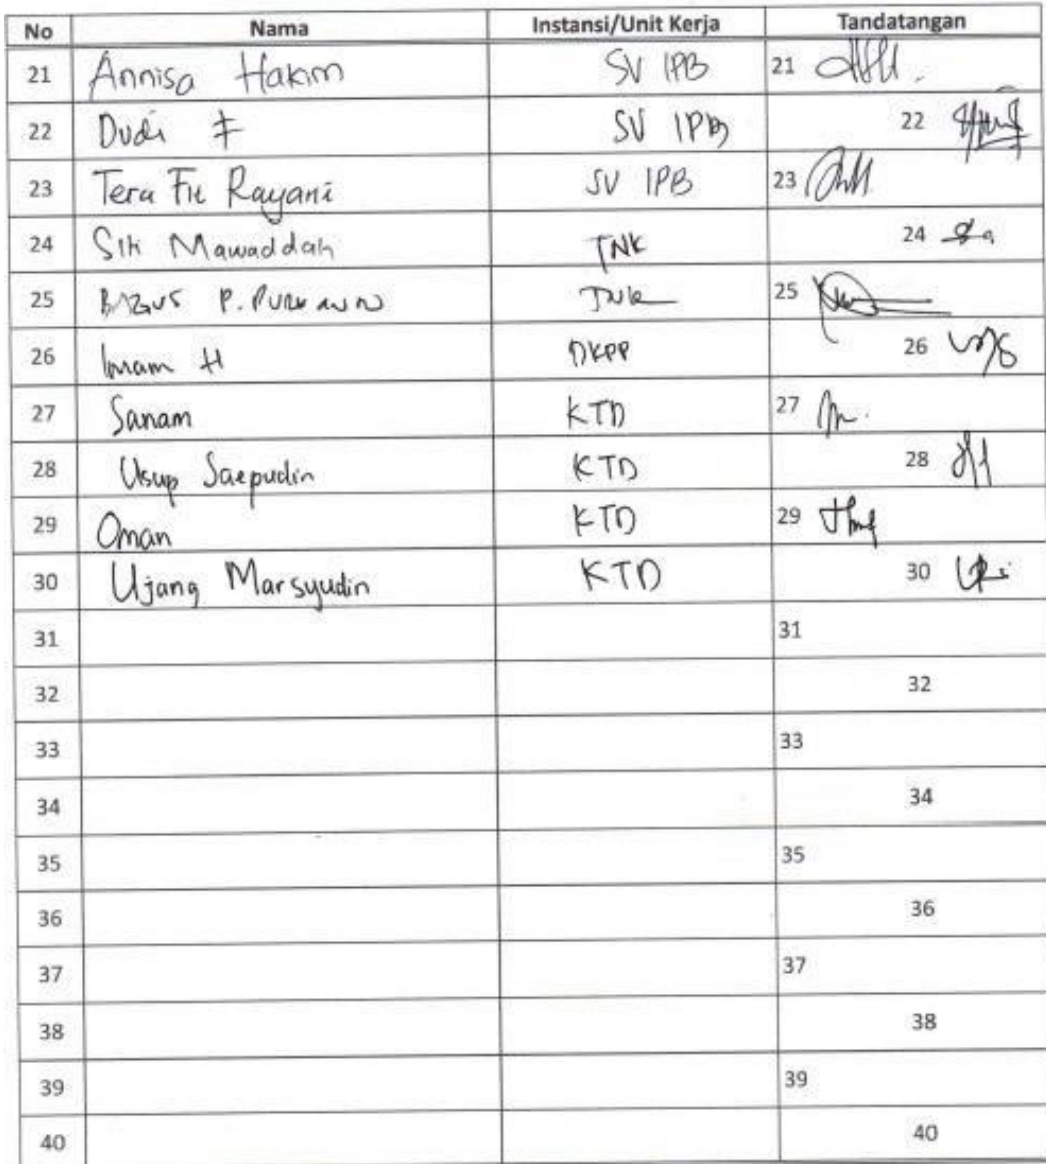 No Nama Instansi/Unit Kerja Tandatangan
21 Annisa Hakim SV IPB 21
22 Dudi F SV IPB 22
23 Tera Fit Rayani SV IPB 23
24 Siti Mawaddah TNK 24
25 P. 25
26 Imam H DKPP 26
27 Sanam KTD 27
28 Usup Saepudin KTD 28
29 Oman KTD 29
30 Ujang Marsyudin KTD 30
31 31
32 32
33 33
34 34
35 35
36 36
37 37
38 38
39 39
40 40